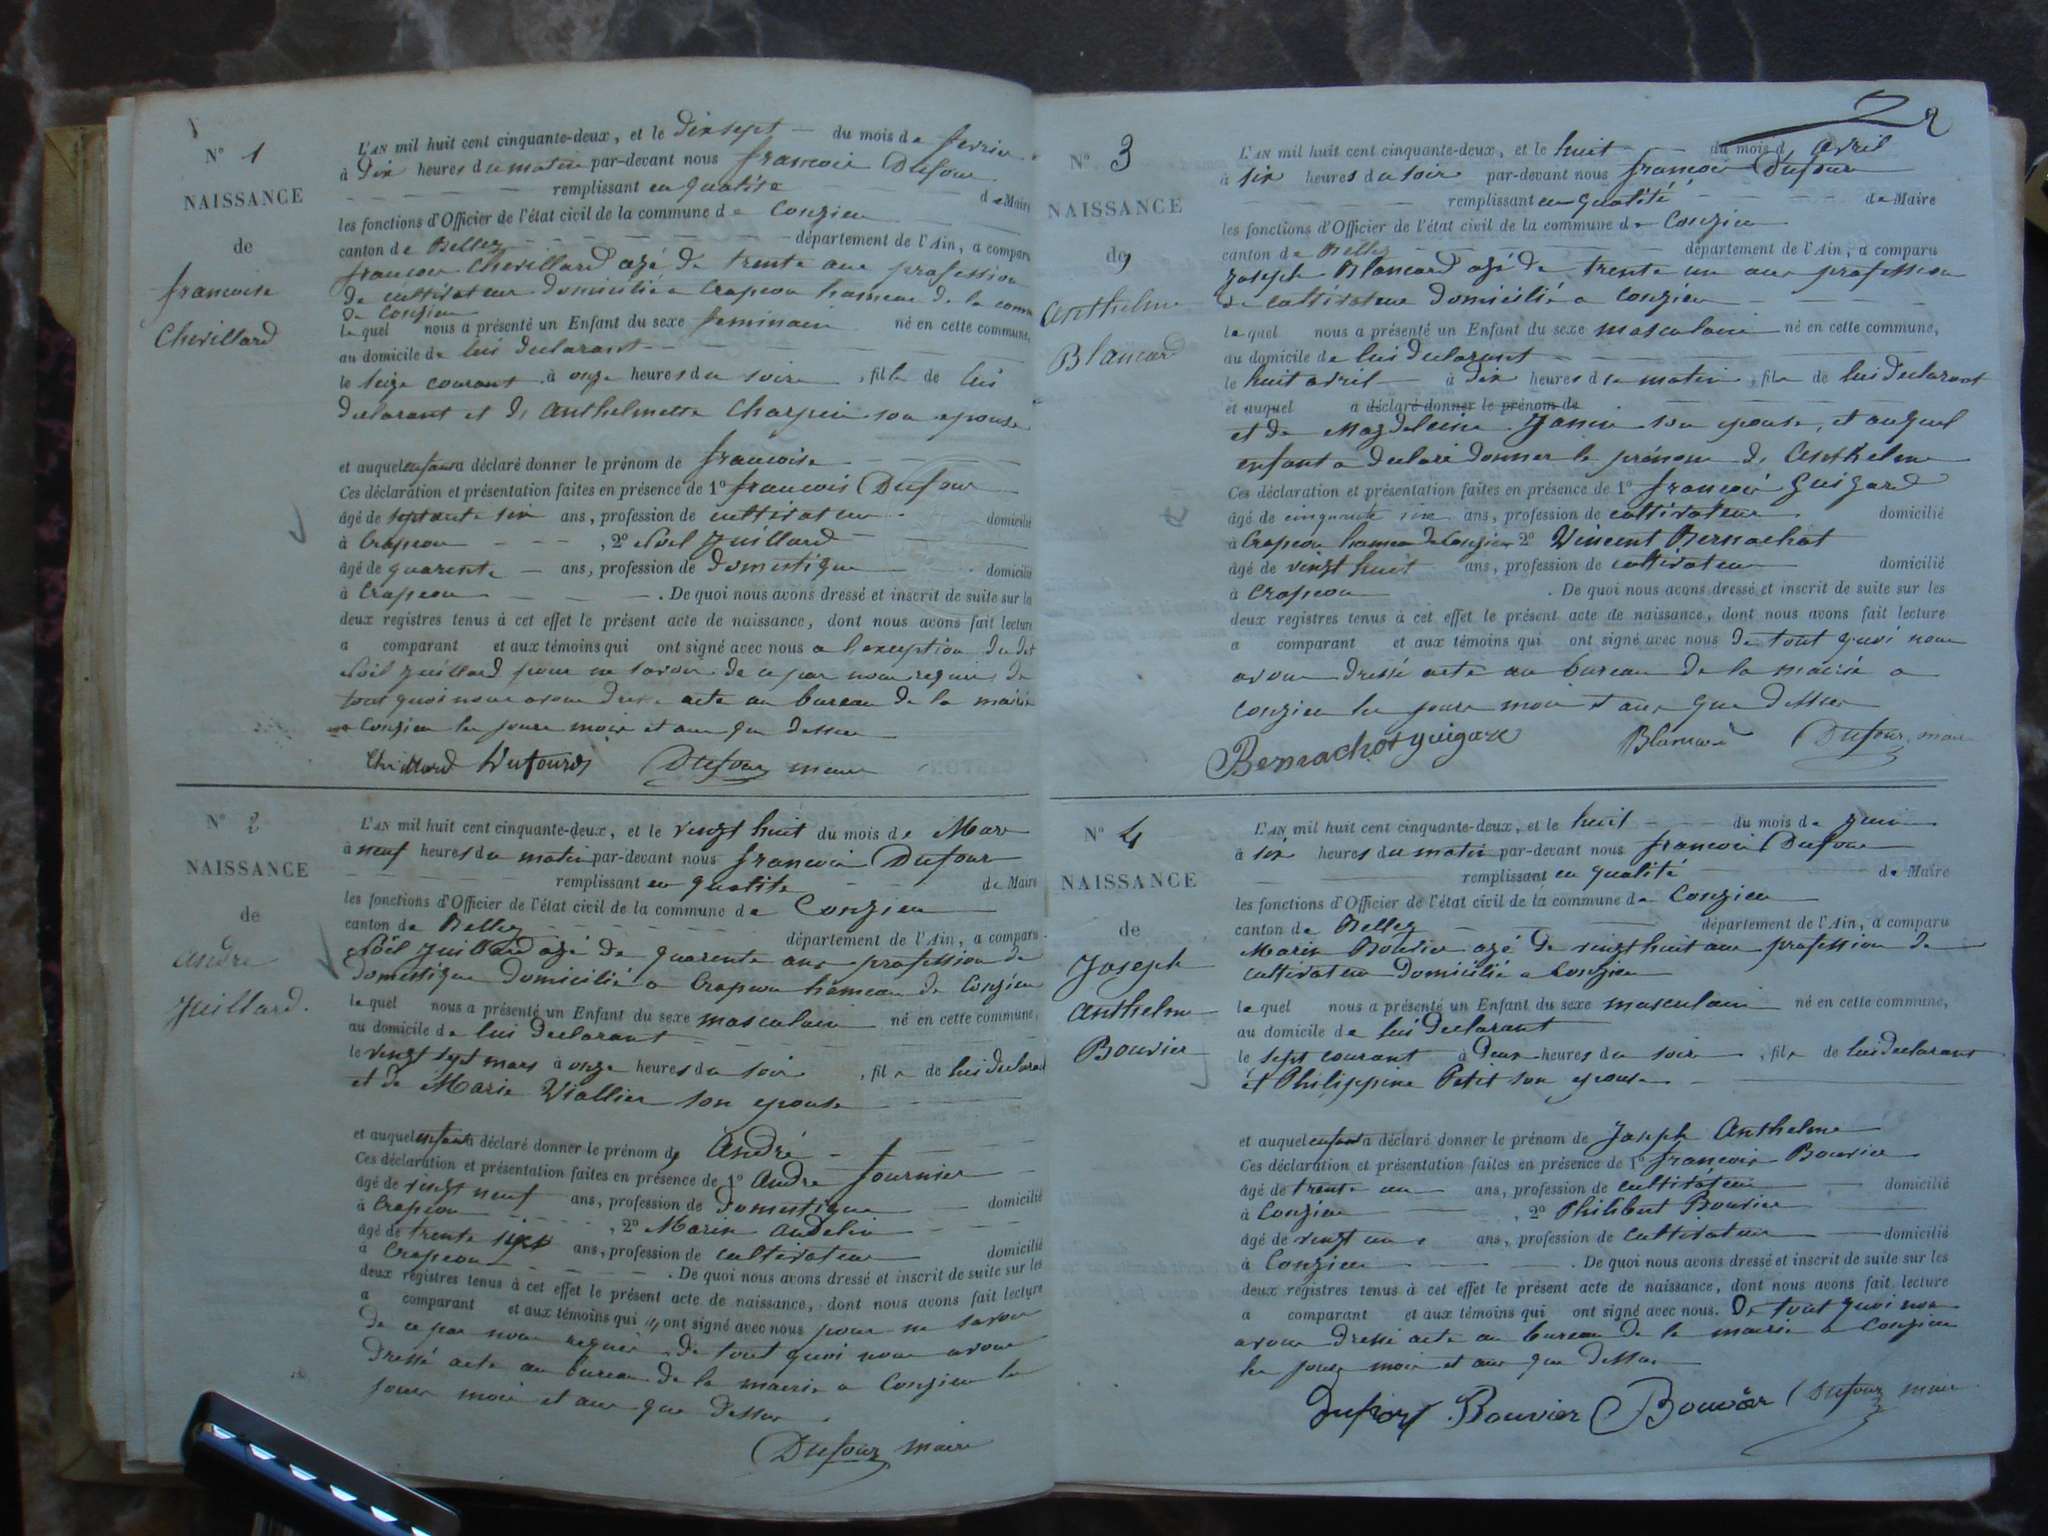 N° 1
NAISSANCE
de
francoise
Chevillard
L'AN mil huit cent cinquante-deux, et le dix sept — du mois de fevrier
à dix heures du matin par-devant nous francois Dufour
remplissant en qualité de Maire
les fonctions d'Officier de l'état civil de la commune de Conzieu
canton de Belley département de l'Ain, a comparu
francois Chevillard agé de trente ans profession
de cultivateur domicilié a Crapeou hameau de la comm
de Conzieu
lequel nous a présenté un Enfant du sexe feminain né en cette commune,
au domicile de lui declarant
le seize courant à onze heures du soire, fille de lui
declarant et de anthelmette Charpin son epouse
et auquel enfant a déclaré donner le prénom de francoise
Ces déclaration et présentation faites en présence de 1° francois Dufour
âgé de septante six ans, profession de cultivateur domicilié
à Crapeou, 2° Noel Juillard
âgé de quarente ans, profession de domestique domicilié
à Crapeou. De quoi nous avons dressé et inscrit de suite sur les
deux registres tenus à cet effet le présent acte de naissance, dont nous avons fait lecture
a comparant et aux témoins qui ont signé avec nous a l'exception du dit
Noël Juillard pour ne savoir de ce par nous requis de
tout quoi nous avons dressé acte au bureau de la mairie
a Conzieu les jours mois et ans que dessus
Chevillard Dufour Dufour maire
N° 2
NAISSANCE
de
andre
Juillard.
L'AN mil huit cent cinquante-deux, et le vingt huit du mois de Mars
à neuf heures du matin par-devant nous francois Dufour
remplissant en qualité de Maire
les fonctions d'Officier de l'état civil de la commune de Conzieu
canton de Belley département de l'Ain, a comparu
Noël Juillard agé de quarente ans profession de
domestique domicilié a Crapeou hameau de Conzieu
lequel nous a présenté un Enfant du sexe masculain né en cette commune,
au domicile de lui declarant
le vingt sept mars à onze heures du soir, fils de lui declarant
et de Marie Viallier son epouse
et auquel enfant a déclaré donner le prénom de André
Ces déclaration et présentation faites en présence de 1° andré fournier
âgé de vingt neuf ans, profession de domestique domicilié
à Crapeou, 2° Marin andelin
âgé de trente ans, profession de cultivateur domicilié
à Crapeou. De quoi nous avons dressé et inscrit de suite sur les
deux registres tenus à cet effet le présent acte de naissance, dont nous avons fait lecture
a comparant et aux témoins qui n'y ont signé avec nous pour ne savoir
de ce par nous requis de tout quoi nous avons
dressé acte au bureau de la mairie a Conzieu les
jours mois et ans que dessus.
Dufour maire
2
N° 3
NAISSANCE
de
anthelme
Blancard
L'AN mil huit cent cinquante-deux, et le huit — du mois d avril
à six heures du soir par-devant nous francois Dufour
remplissant en qualité de Maire
les fonctions d'Officier de l'état civil de la commune de Conzieu
canton de Belley département de l'Ain, a comparu
Joseph Blancard agé de trente un ans profession
de cultivateur domicilié a Conzieu
lequel nous a présenté un Enfant du sexe masculain né en cette commune,
au domicile de lui declarant
le huit avril à dix heures du matin, fils de lui declarant
et auquel a déclaré donner le prénom de
et de Magdeleine Janin son epouse, et auquel
enfant a declaré donner le prénom de Anthelme
Ces déclaration et présentation faites en présence de 1° francois Guigard
âgé de cinquante six ans, profession de cultivateur domicilié
à Crapeou hameau de Conzieu 2° Vincent Bernachot
âgé de vingt huit ans, profession de cultivateur domicilié
à Crapeou. De quoi nous avons dressé et inscrit de suite sur les
deux registres tenus à cet effet le présent acte de naissance, dont nous avons fait lecture
a comparant et aux témoins qui ont signé avec nous de tout quoi nous
avons dressé acte au bureau de la mairie a
Conzieu les jours mois et ans que dessus
Bernachot guigard Blancard Dufour maire
N° 4
NAISSANCE
de
Joseph
anthelme
Bouvier
L'AN mil huit cent cinquante-deux, et le huit — du mois de juin
à six heures du matin par-devant nous francois Dufour
remplissant en qualité de Maire
les fonctions d'Officier de l'état civil de la commune de Conzieu
canton de Belley département de l'Ain, a comparu
Marin Bouvier agé de vingt huit ans profession de
cultivateur domicilié a Conzieu
lequel nous a présenté un Enfant du sexe masculain né en cette commune,
au domicile de lui declarant
le sept courant à deux heures du soir, fils de lui declarant
et Philippine Petit son epouse
et auquel enfant a déclaré donner le prénom de Joseph Anthelme
Ces déclaration et présentation faites en présence de 1° francois Bouvier
âgé de trente un ans, profession de cultivateur domicilié
à Conzieu, 2° Philibert Bouvier
âgé de vingt un ans, profession de cultivateur domicilié
à Conzieu. De quoi nous avons dressé et inscrit de suite sur les
deux registres tenus à cet effet le présent acte de naissance, dont nous avons fait lecture
a comparant et aux témoins qui ont signé avec nous. De tout quoi nous
avons dressé acte au bureau de la mairie a Conzieu
les jours mois et ans que dessus
Bouvier Bouvier Dufour maire